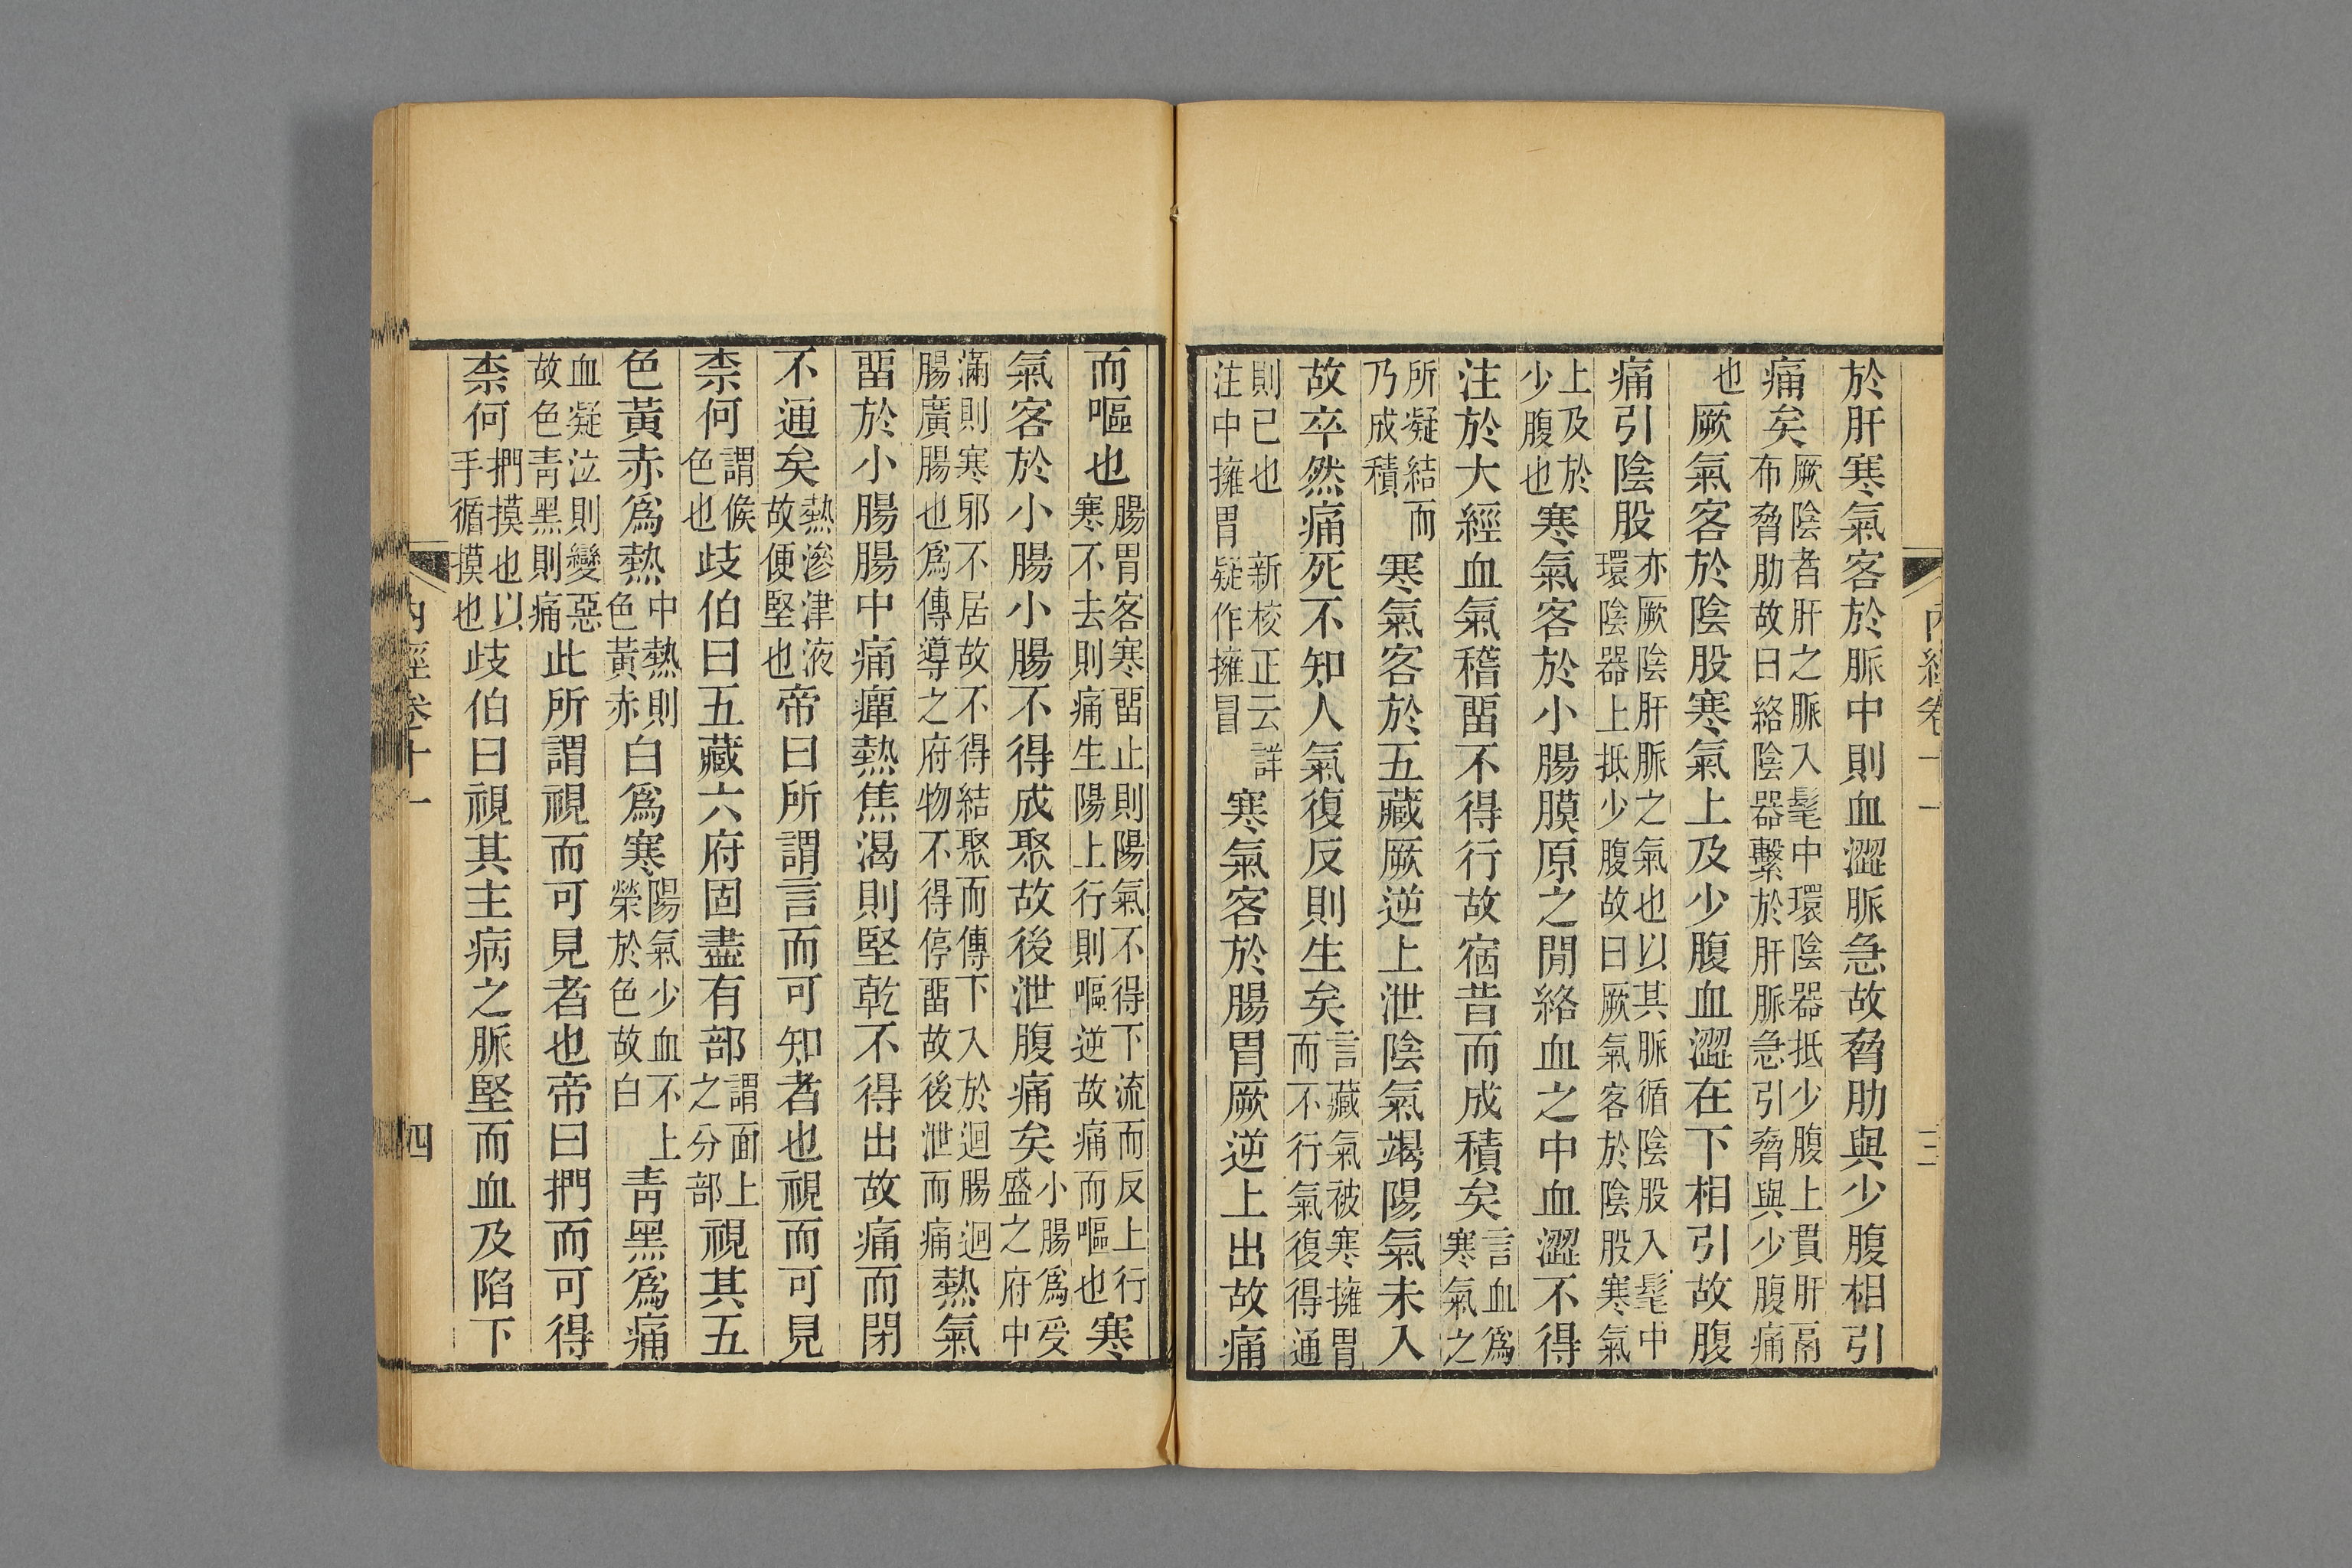 於肝寒氣客於脈中則血澀脈急故脅肋與少腹相引
痛矣厥陰者肝之脈入髦中環陰器抵少腹上貫肝鬲布脅肋故曰絡陰器繫於肝脈急引脅與少腹痛
也厥氣客於陰股寒氣上及少腹血澀在下相引故腹
痛引陰股亦厥陰肝脈之氣也以其脈循陰股入髦中環陰器上抵少腹故曰厥氣客於陰股寒氣
上及於少腹也寒氣客於小腸膜原之閒絡血之中血澀不得
注於大經血氣稽畱不得行故宿昔而成積矣言血爲寒氣之
所凝結而乃成積寒氣客於五藏厥逆上泄陰氣竭陽氣未入
故卒然痛死不知人氣復反則生矣言藏氣被寒擁胃而不行氣復得通
則已也　新校正云詳注中擁胃疑作擁冒寒氣客於腸胃厥逆上出故痛
而嘔也腸胃客寒畱止則陽氣不得下流而反上行寒不去則痛生陽上行則嘔逆故痛而嘔也寒
氣客於小腸小腸不得成聚故後泄腹痛矣小腸爲受盛之府中
滿則寒邪不居故不得結聚而傳下入於迴腸迴腸廣腸也爲傳導之府物不得停畱故後泄而痛熱氣
畱於小腸腸中痛癉熱焦渴則堅乾不得出故痛而閉
不通矣熱滲津液故便堅也帝曰所謂言而可知者也視而可見
柰何謂候色也歧伯曰五藏六府固盡有部謂面上之分部視其五
色黃赤爲熱中熱則色黃赤白爲寒陽氣少血不上榮於色故白靑黑爲痛
血凝泣則變惡故色靑黑則痛此所謂視而可見者也帝曰捫而可得
柰何捫摸也以手循摸也歧伯曰視其主病之脈堅而血及陷下
內經卷十一　四